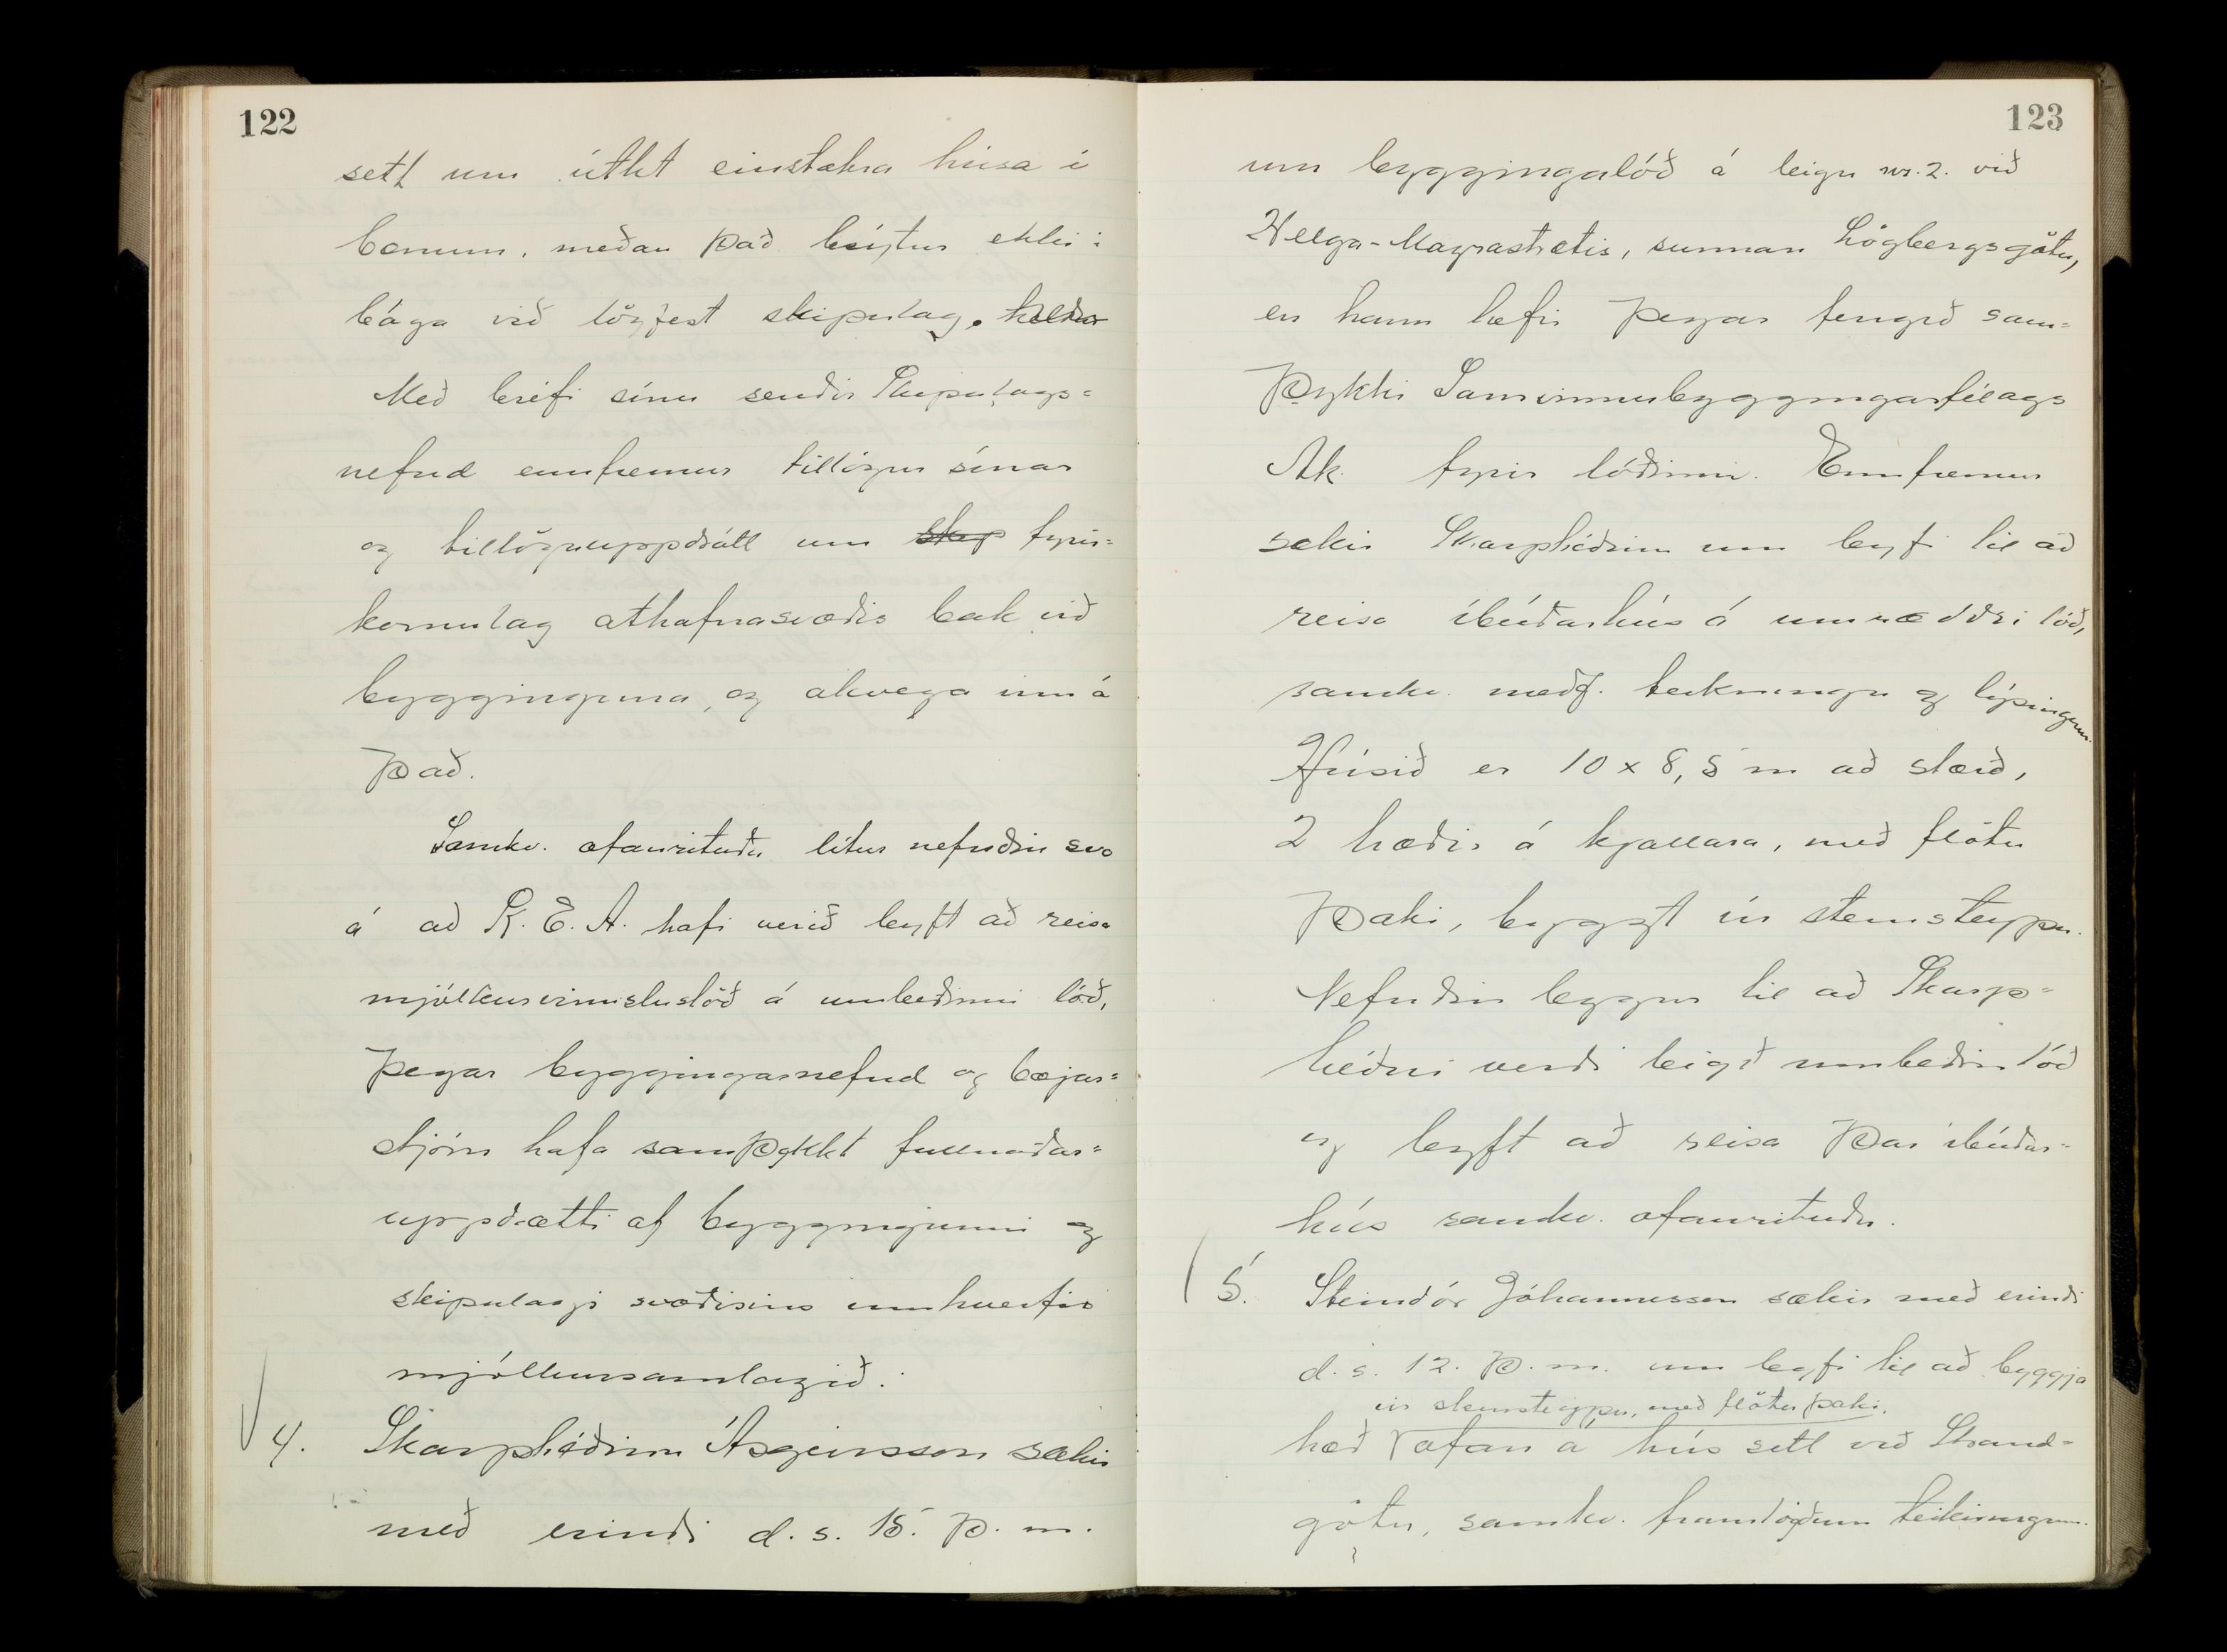 122
sett um útlit einstakra húsa í
bænum, meðan það brýtur ekki í
bága við lögfest skipulag. heldur
Með bréfi sínu sendir Skipulags=
nefnd ennfremur tillögur sínar
og tillöguuppdrátt um skip fyrir=
komulag athafnasvæðis bak við
bygginguna, og akvega inn á
það.
Samkv. ofanrituðu lítur nefndin svo
á að K.E.A. hafi verið leyft að reisa
mjólkurvinnslustöð á umbeðinni lóð,
þegar byggingarnefnd og bæjar=
stjórn hafa samþykkt fullnaðar=
uppdrætti af byggingunni og
skipulagi svæðisins umhverfis
mjólkursamlagið.
4. Skarphéðinn Ásgeirsson sækir
með erindi d.s. 15. þ.m.
123
um byggingalóð á leigu nr. 2. við
Helga-Magrastræti, sunnan Lögbergsgötu,
en hann hefir þegar fengið sam=
þykki Samvinnubyggingarfélags
Ak. fyrir lóðinni. Ennfremur
sækir Skarphéðinn um leyfi til að
reisa íbúðarhús á umræddri lóð,
samkv. meðf. teikningu og lýsingum.
Húsið er 10 x 8,5 m að stærð,
2 hæðir á kjallara, með flötu
þaki, byggt úr steinsteypu.
Nefndin leggur til að Skarp=
héðni verði leigð umbeðin lóð
og leyft að reisa þar íbúðar=
hús samkv. ofanrituðu.
5. Steindór Jóhannesson sækir með erindi
d.s. 12. þ.m. um leyfi til að byggja
úr steinsteypu, með flötu þaki,
hæð ofan á hús sitt við Strand=
götu, samkv. framlögðum teikningum.